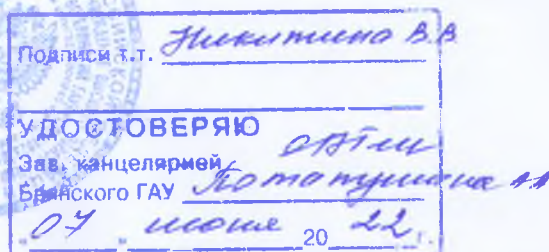 Подписи т.т. Никитина В.В.
УДОСТОВЕРЯЮ
Зав. канцелярией
Брянского ГАУ
07 июня 20 22 г.